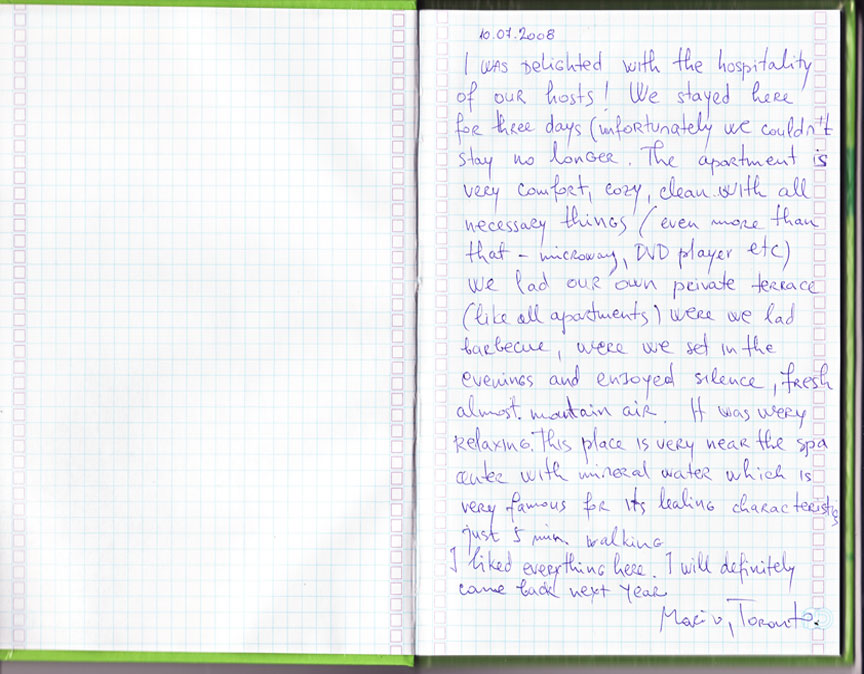 10.07.2008
I was delighted with the hospitality
of our hosts! We stayed here
for three days (unfortunately we couldn't
stay no longer. The apartment is
very comfort, cozy, clean with all
necessary things (even more than
that - microway, DVD player etc)
We lad our own private terrace
(like all apartments) were we lad
barbecue, were we set in the
evenings and enjoyed silence, fresh
almost mountain air. It was wery
relaxing. This place is very near the spa
center with mineral water which is
very famous for its lealing characteristics
just 5 min. walking
I liked everything here. I will definitely
come back next year
Toronto.